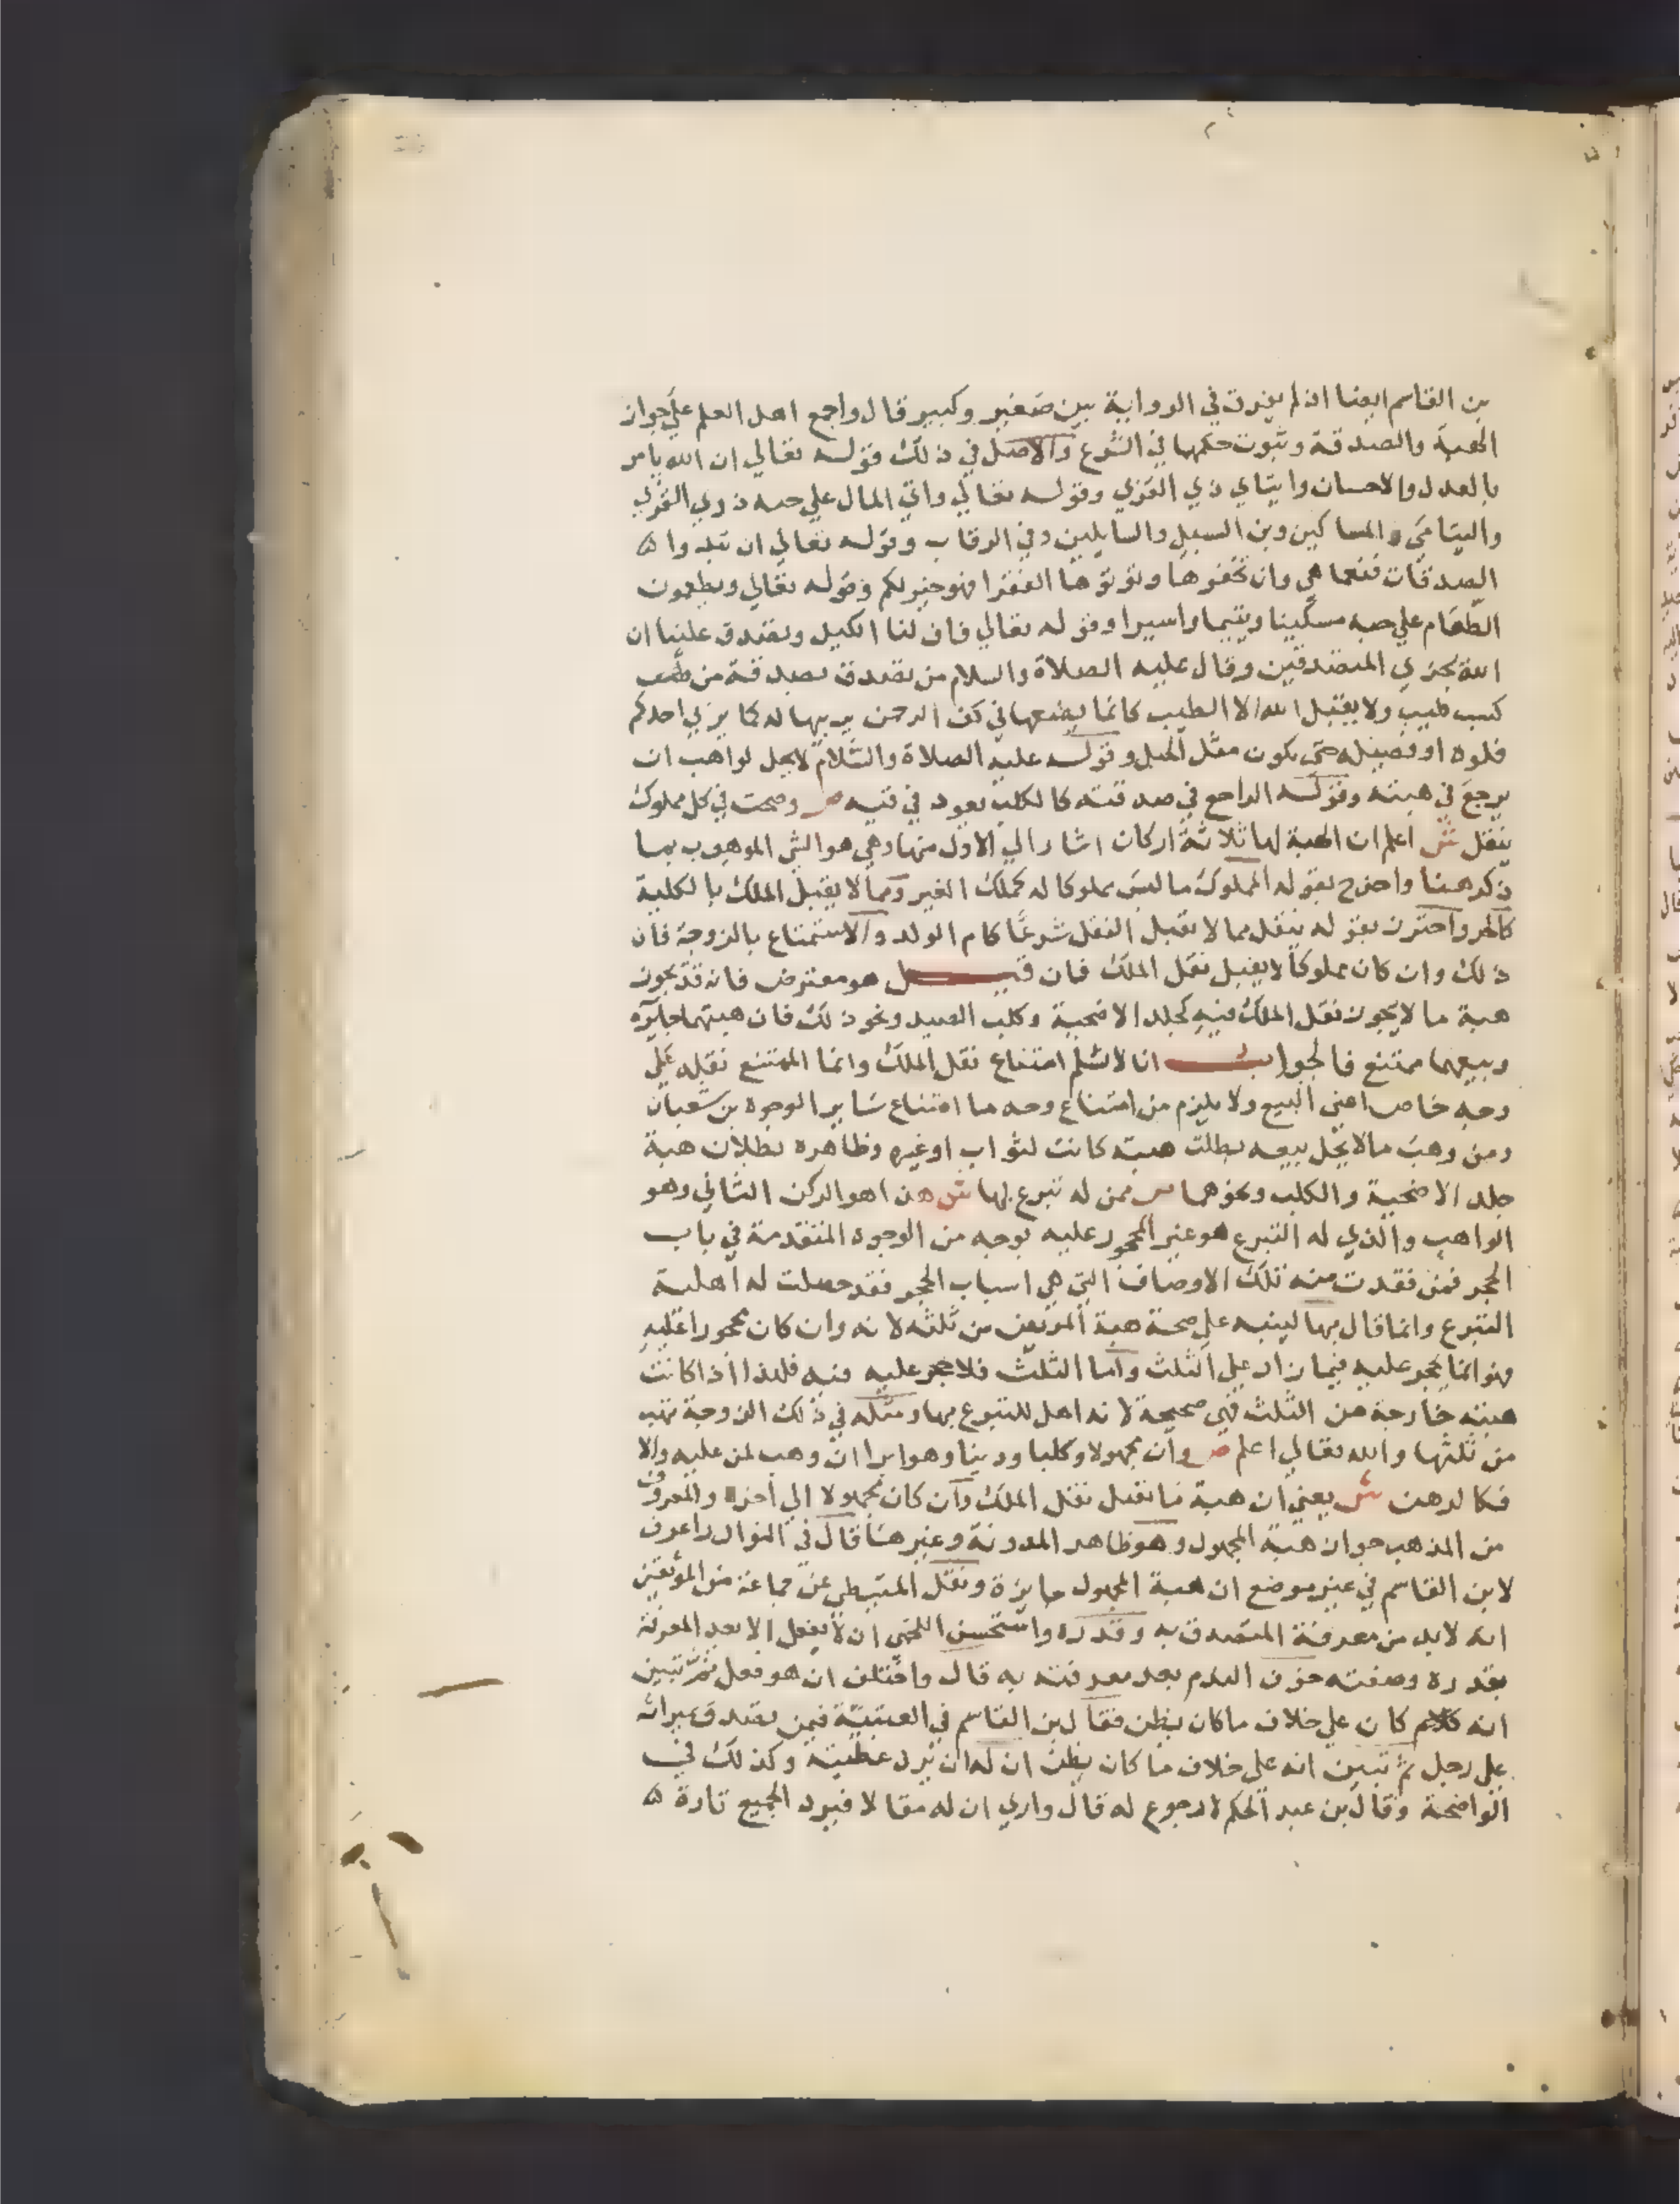 بن القاسم ايضا اذ لم يفرق في الرواية بين صغير وكبير قال واجمع اهل العلم علي جواز
الهبة والصدقة وثبوت حكمها في الشرع والاصل في ذلك قوله تعالي ان الله يامر
بالعدل والاحسان وايتاي ذي القربي وقوله تعالي واتي المال علي حبه ذوي القربي
واليتامي والمساكين وبن السبيل والسايلين وفي الرقاب وقوله تعالي ان تبدوا
الصدقات فنعما هي وان تخفوها وتوتوها الفقرا فهو خير لكم وقوله تعالي ويطعمون
الطعام علي حبه مسكينا ويتيما واسيرا وقوله تعالي فاوف لنا الكيل وتصدق علينا ان
الله يجزي المتصدقين وقال عليه الصلاة والسلام من تصدق بصدقة من
كسب طيب ولا يقبل الله الا الطيب كانما يضعها في كف الرحمن يربيها له كما يربي احدكم
فلوه او فصيله حتي يكون مثل الجبل وقوله عليه الصلاة والسلام لا يحل لواهب ان
يرجع في هبته وقوله الراجع في صدقته كالكلب يعود في قييه ص وصحت في كل مملوك
ينقل ش اعلم ان الهبة لها ثلاثة اركان اشار الي الاول منها وهي هو الشي الموهوب بما
ذكر هنا واخرج بقوله المملوك ما ليس مملوكا له كملك الغير ومما لا يقبل الملك بالكلية
كالحر واحترز بقوله ينقل مما لا يقبل النقل شرعا كام الولد والاستمتاع بالزوجة فان
ذلك وان كان مملوكا لا يقبل نقل الملك فان قيل هو معترض فانه قد يجوز
هبة ما لا يجوز نقل الملك فيه كجلد الاضحية وكلب الصيد ونحو ذلك فان هبتهما جايزه
وبيعهما ممتنع فالجواب انا لا نسلم امتناع نقل الملك وانما الممتنع نقله علي
وجه خاص اعني البيع ولا يلزم من امتناع وجه ما امتناع ساير الوجوه بن شعبان
ومن وهب ما لا يحل بيعه بطلت هبته كانت لثواب او غيره وظاهره بطلان هبة
جلد الاضحية والكلب ونحوهما ص ممن له تبرع بها ش هذا هو الركن الثاني وهو
الواهب والذي له التبرع هو غير المحجور عليه بوجه من الوجوه المتقدمة في باب
الحجر فمن فقدت منه تلك الاوصاف التي هي اسباب الحجر فقد حصلت له اهلية
التبرع وانما قال بها لينبه علي صحة هبة المريض من ثلثه لانه وان كان محجورا عليه
فهو انما يحجر عليه فيما زاد علي الثلث واما الثلث فلا حجر عليه فيه فلهذا اذا كانت
هبته خارجة من الثلث فهي صحيحة لانه اهل للتبرع بها ومثله في ذلك الزوجة تهب
من ثلثها والله تعالي اعلم ص وان مجهولا وكلبا ودينا وهو ابرا ان وهب لمن عليه والا
فكالرهن ش يعني ان هبة ما يقبل نقل الملك وان كان مجهولا الي اخره والمعروف
من المذهب جواز هبة المجهول وهو ظاهر المدونة وغيرها قال في النوادر واعرف
لابن القاسم في غير موضع ان هبة المجهول جايزة ونقل المتيطي عن جماعة من الموثقين
انه لا بد من معرفة المتصدق به وقدره واستحسن اللخمي ان لا يفعل الا بعد المعرفة
بقدره وصفته خوف الندم بعد معرفته به قال واختلف ان هو فعل ثم تبين
انه كان علي خلاف ما كان يظن فقال بن القاسم في العتبية فيمن تصدق بميراثه
علي رجل ثم تبين انه علي خلاف ما كان يظن ان له ان يرد عطيته وكذلك في
الواضحة وقال بن عبد الحكم لا رجوع له قال واري ان له مقالا فيرد الجميع تارة